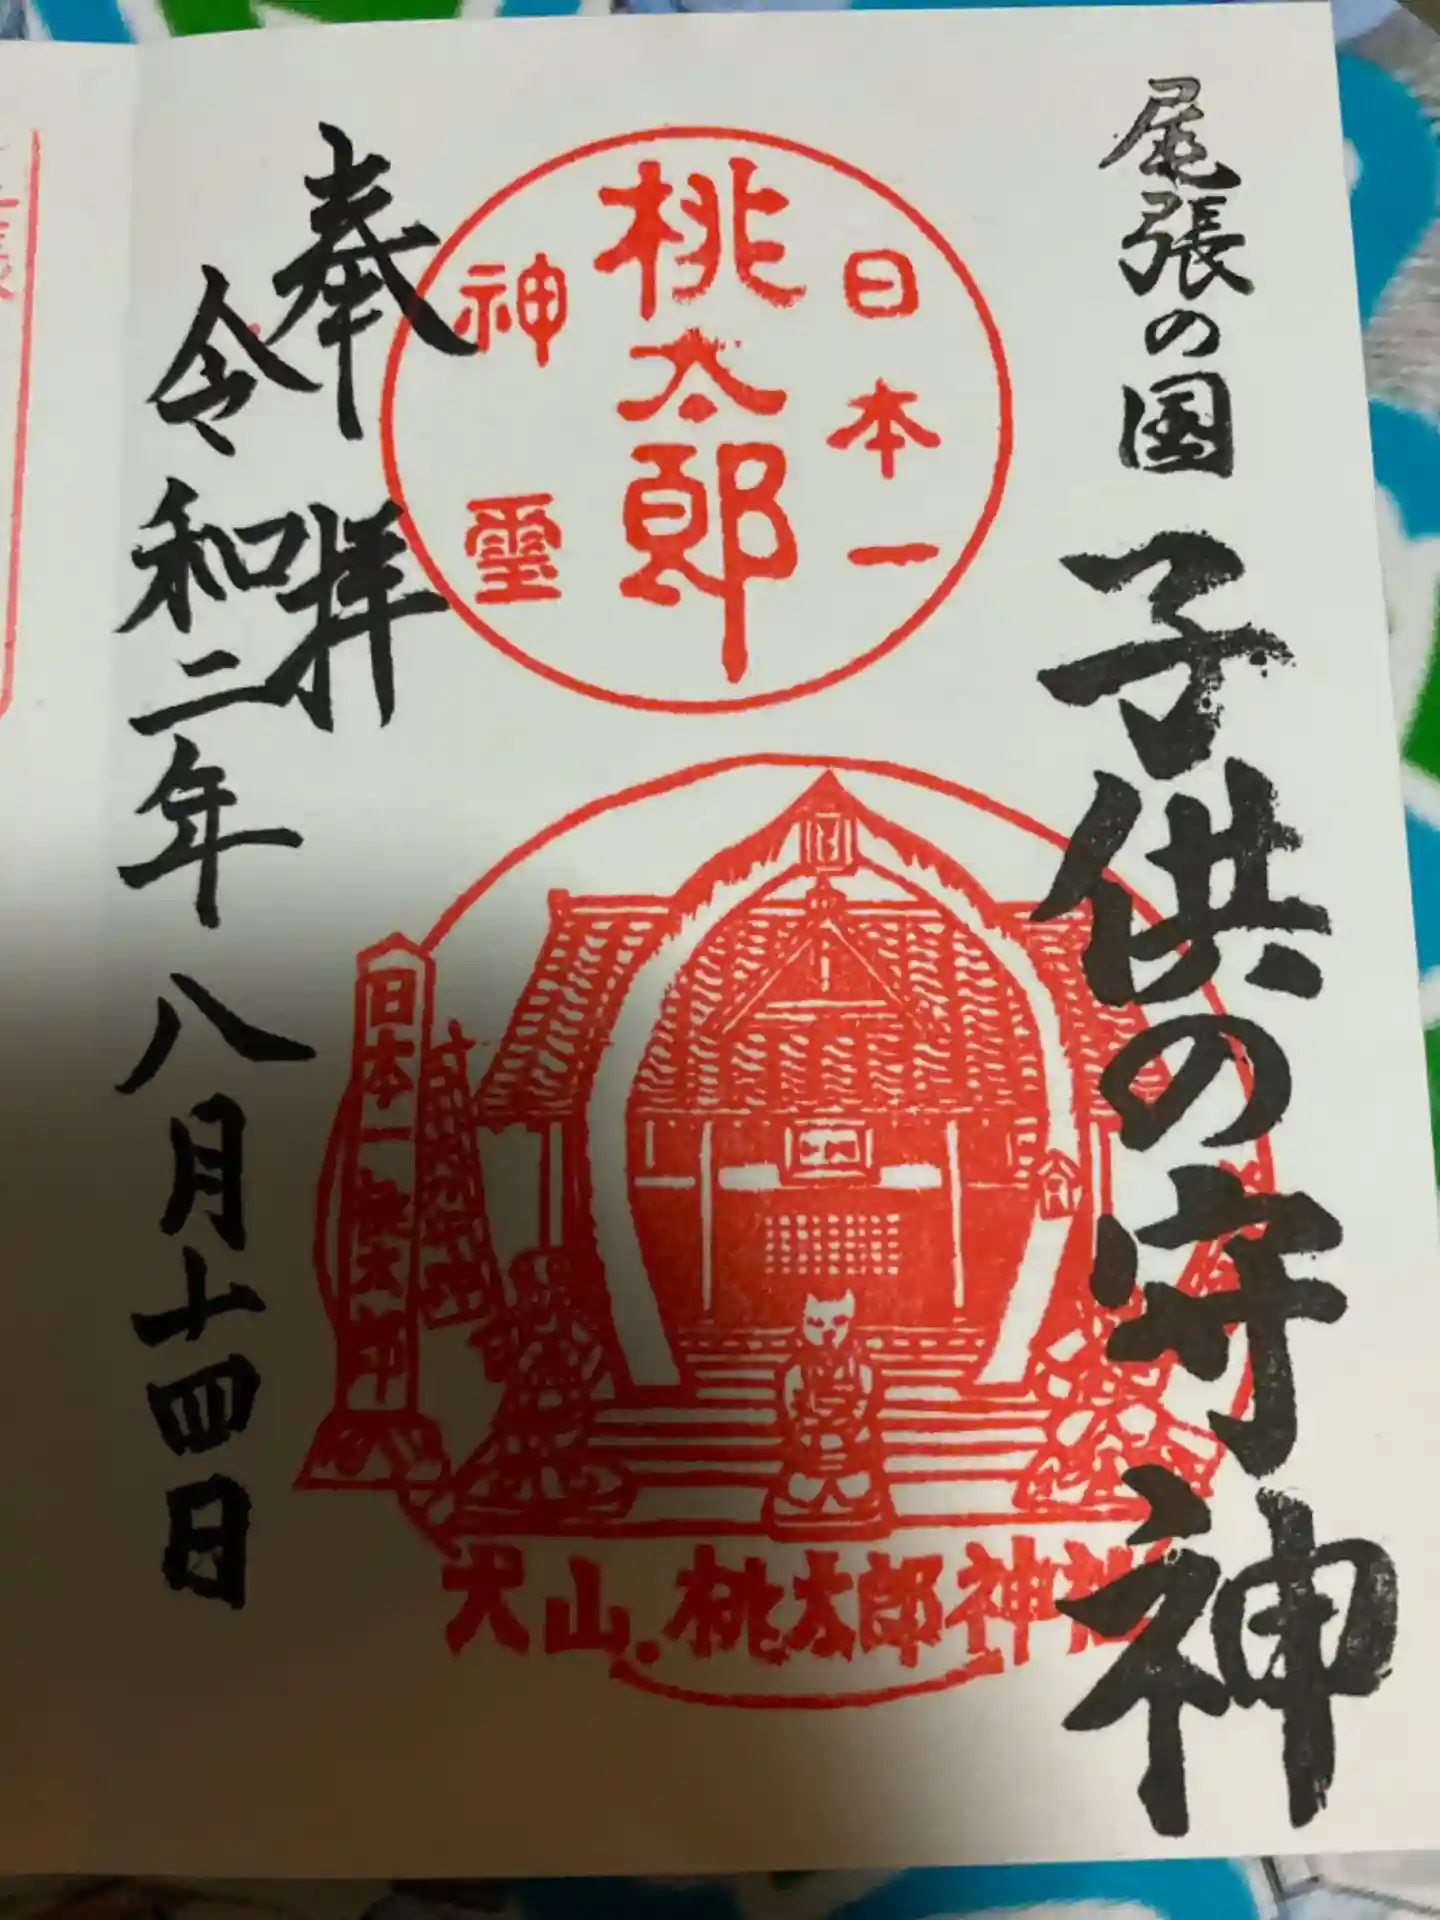 尾張の国 子供の守神
日本一
桃太郎
神霊
奉拝
令和二年八月十四日
日本一桃太郎
犬山.桃太郎神社